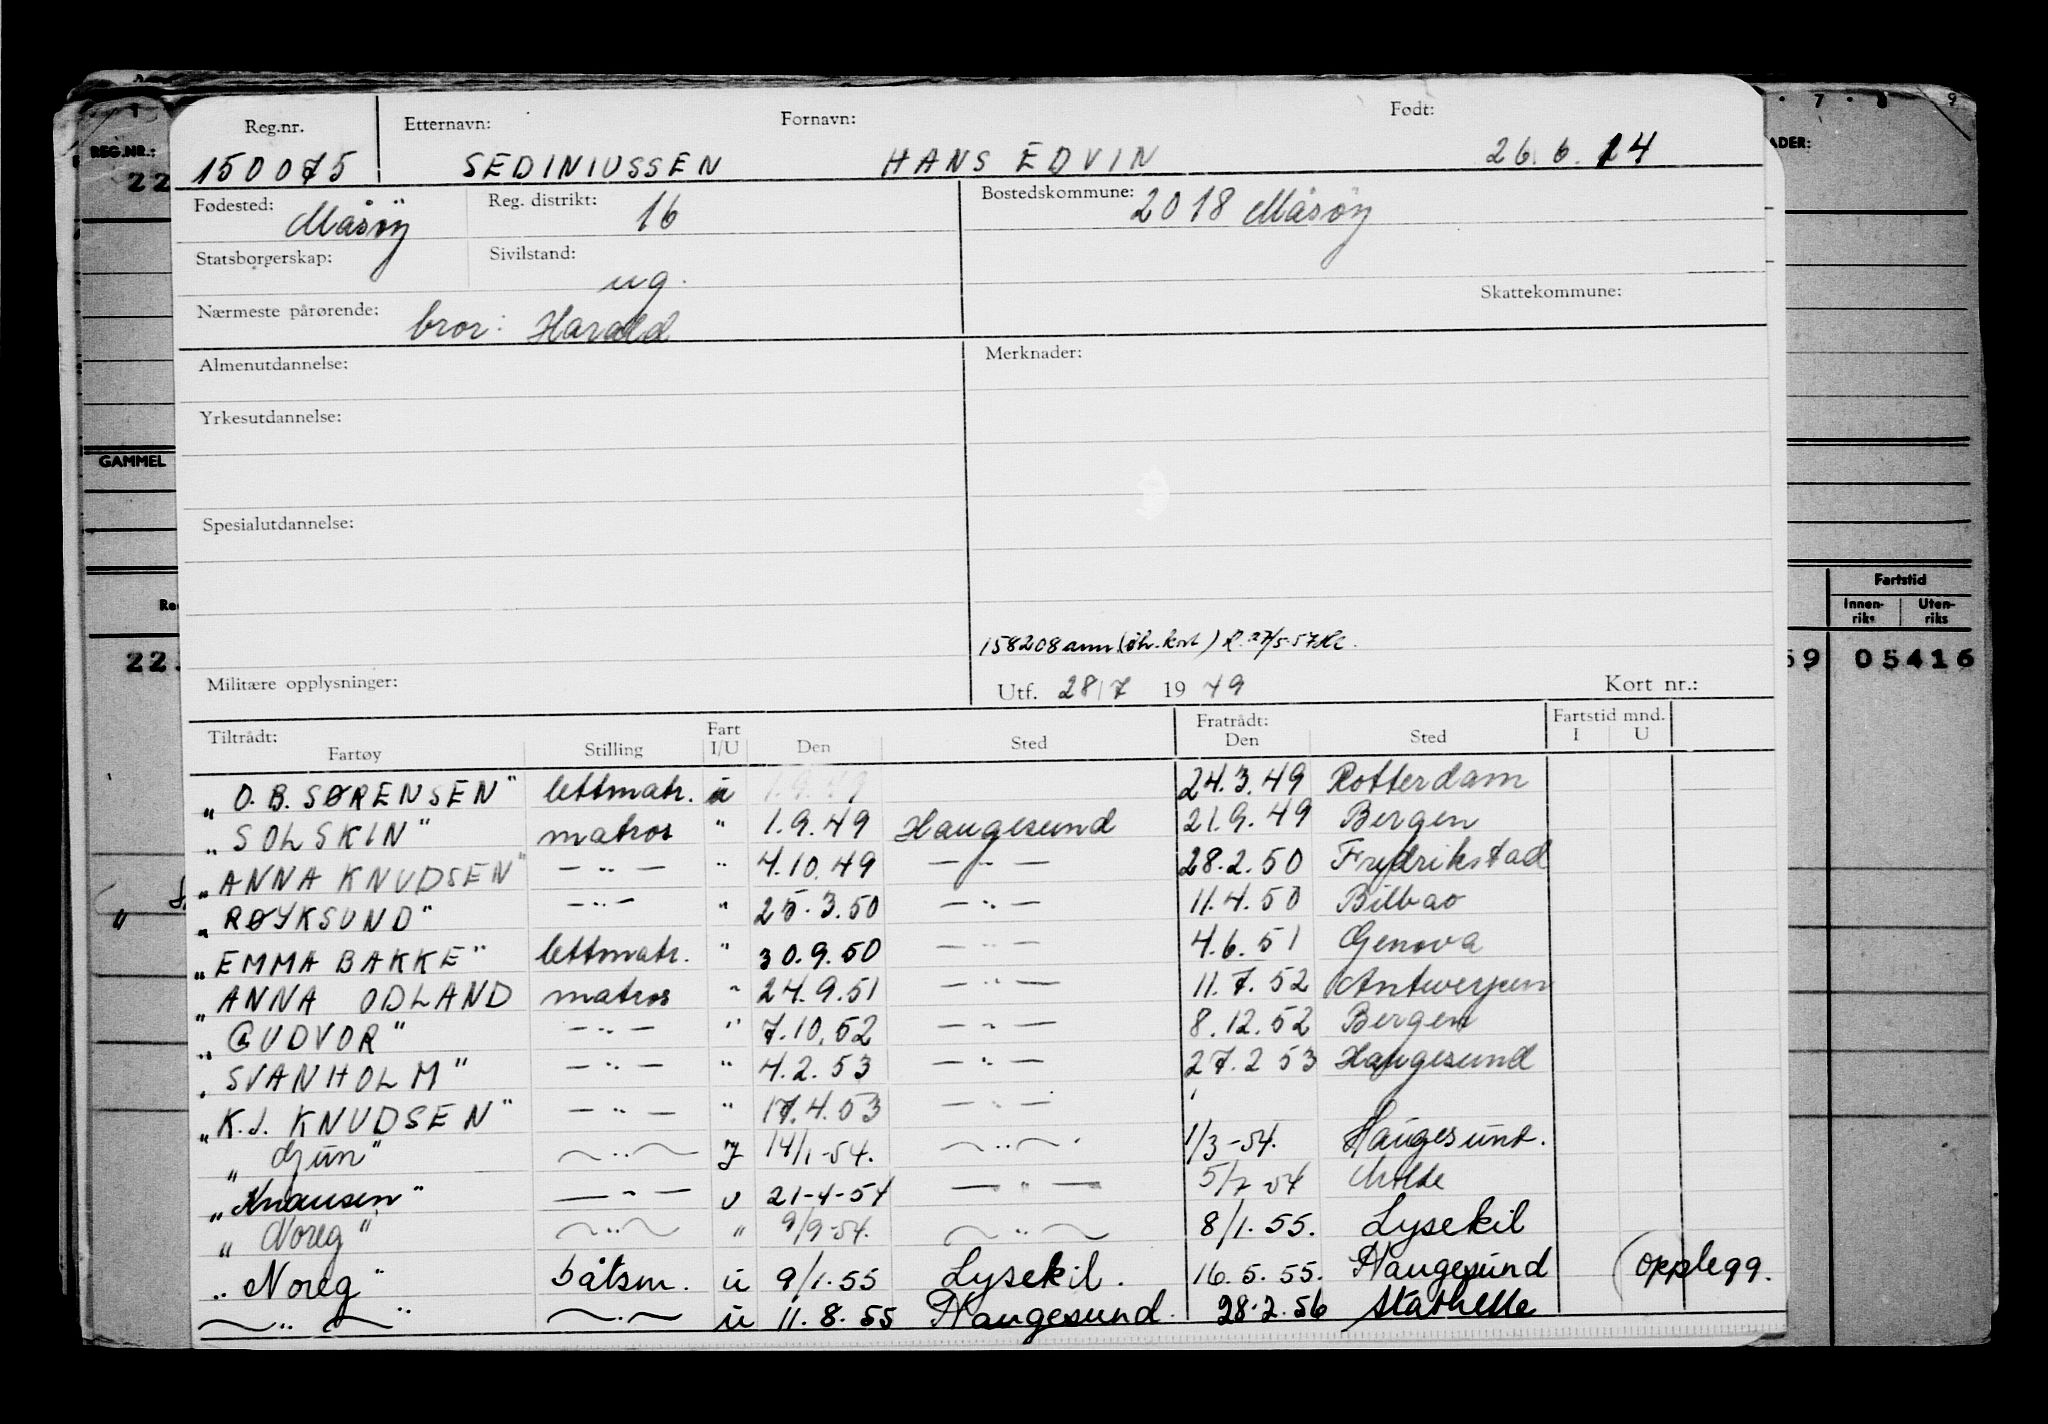 Reg.nr. Etternavn: Fornavn: Født:
150075 SEDINIUSSEN HANS EDVIN 26.6.14
Fødested: Måsøy Reg. distrikt: 16 Bostedskommune: 2018 Måsøy
Statsborgerskap: Sivilstand: ug. Skattekommune:
Nærmeste pårørende: bror: Harald
Almenutdannelse: Merknader:
Yrkesutdannelse:
Spesialutdannelse:
158208 ann. R. 27/5-57
Militære opplysninger: Utf. 28/7 1949 Kort nr.:
Tiltrådt: Fart Fratrådt: Fartstid mnd.
Fartøy Stilling I/U Den Sted Den Sted I U
"O. B. SØRENSEN" lettmatr. u 1.9.49 24.3.49 Rotterdam
"SOLSKIN" matros " 1.9.49 Haugesund 21.9.49 Bergen
"ANNA KNUDSEN" — " — " 4.10.49 — " — 28.2.50 Fredrikstad
"RØYKSUND" — " — " 25.3.50 — " — 11.4.50 Bilbao
"EMMA BAKKE" lettmatr. " 30.9.50 — " — 4.6.51 Genova
"ANNA ODLAND matros " 24.9.51 — " — 11.7.52 Antwerpen
"GUDVOR" — " — " 7.10.52 — " — 8.12.52 Bergen
"SVANHOLM" — " — " 4.2.53 — " — 27.2 53 Haugesund
"K.J. KNUDSEN" — " — " 17.4.53 — " —
"Gun" — " — I 14/1-54. — " — 1/3-54. Haugesund.
"Knausen" — " — u 21-4-54 — " — 5/7-54 Molde
"Noreg" — " — " 9/9-54. — " — 8/1.55. Lysekil
"Noreg" båtsm. u 9/1.55 Lysekil. 16.5.55. Haugesund (opplegg.
— " — " — " — u 11.8.55 Haugesund. 28.2.56 Stathelle
REG.NR.:
22
GAMMEL
22.
7 · 8 9
Fartstid
Innen-riks Uten-riks
59 05416